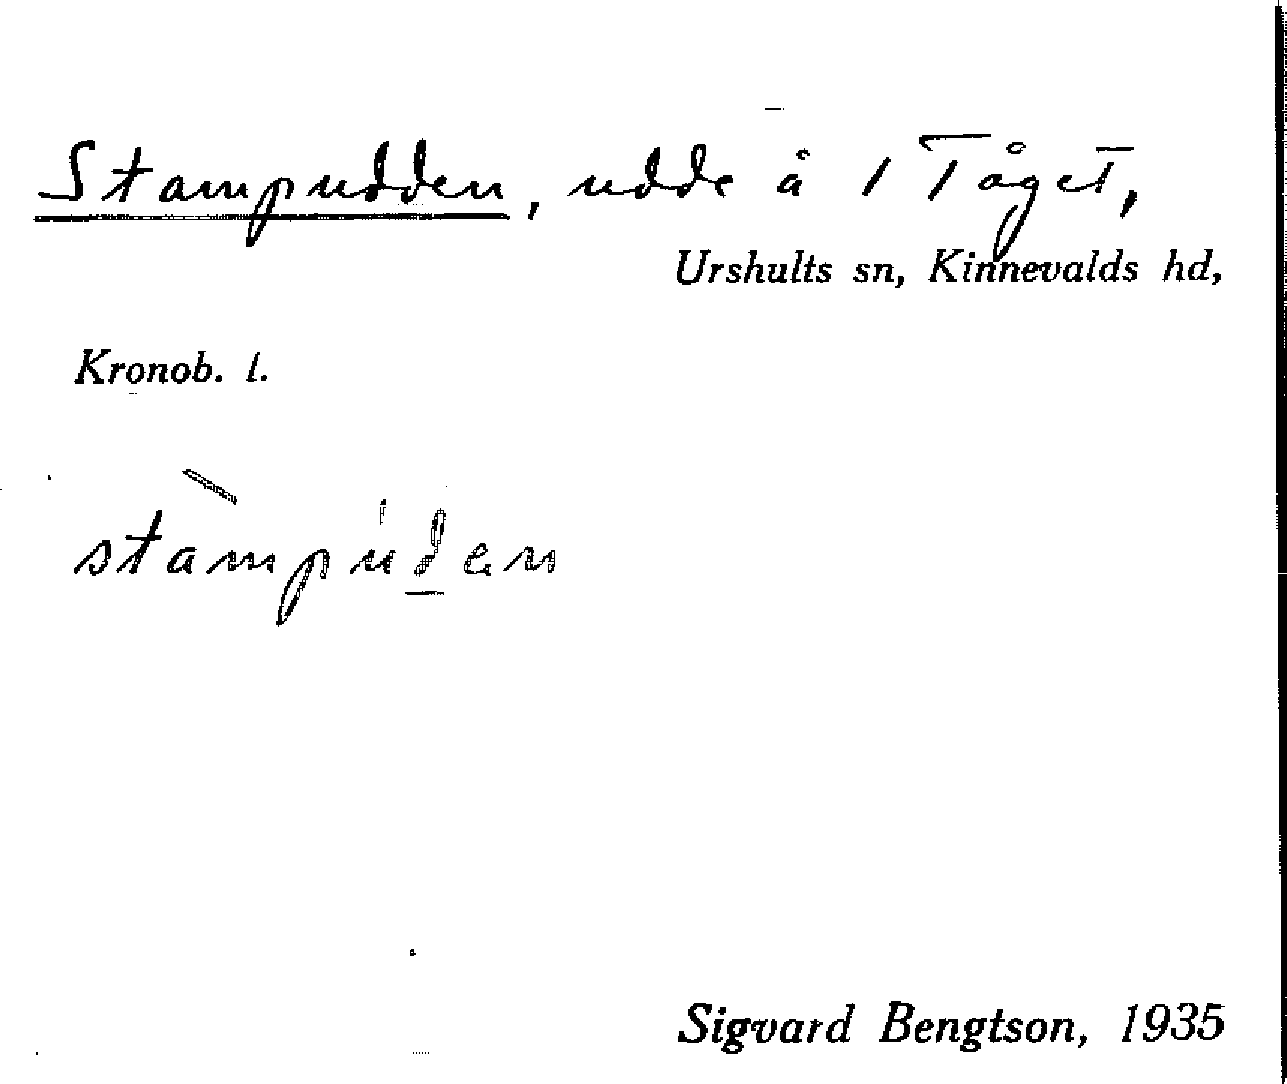 Stampudden, udde å 1 Tåget,
Urshults sn, Kinnevalds hd,
Kronob. l.
stàmpúden
Sigvard Bengtson, 1935